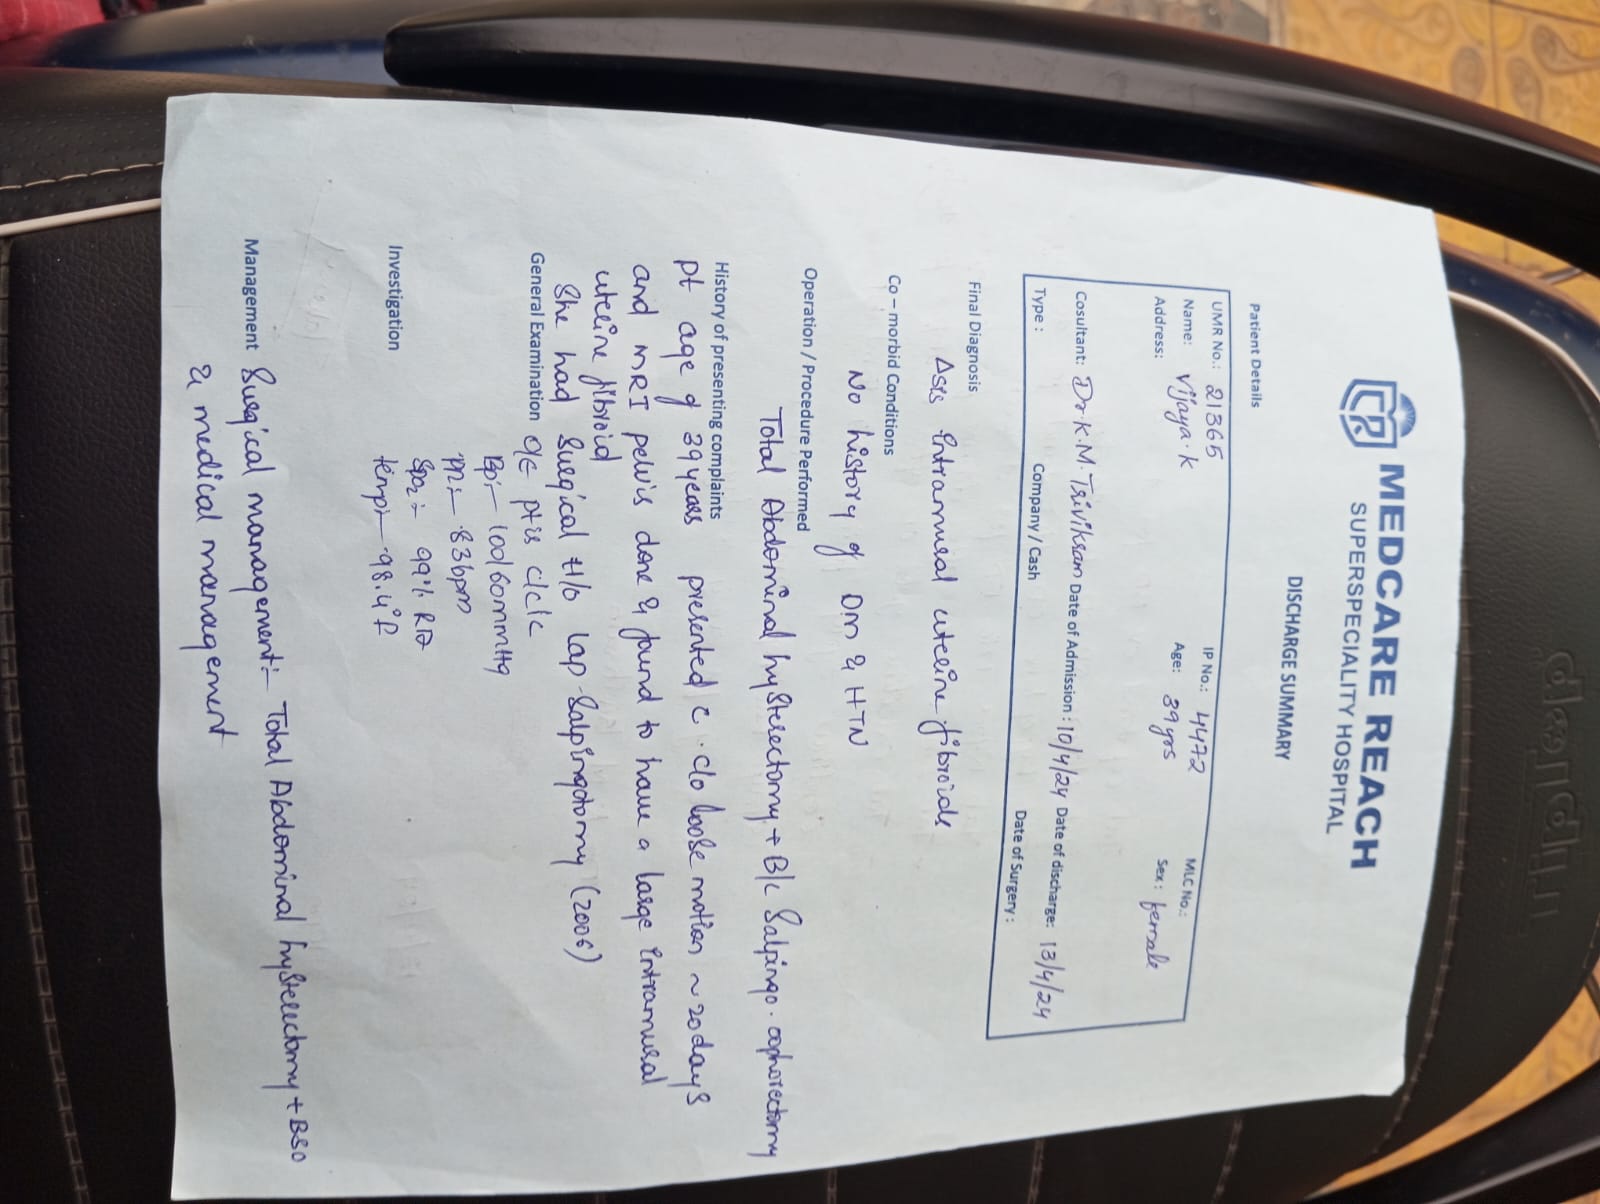 MEDCARE REACH
SUPERSPECIALITY HOSPITAL
DISCHARGE SUMMARY
Patient Details
UMR No.: 21365 IP No.: 4472 MLC No.:
Name: Vijaya.k Age: 39yrs Sex: female
Address:
Cosultant: Dr.K.M.Trivikram Date of Admission: 10/4/24 Date of discharge: 13/4/24
Type: Company / Cash Date of Surgery:
Final Diagnosis
Δsis Intramural uterine fibroids
Co – morbid Conditions
No history of DM & HTN
Operation / Procedure Performed
Total Abdominal hysterectomy + B/L Salpingo-oophorectomy
History of presenting complaints
pt age of 39years presented c c/o loose motion ~ 20days
and MRI pelvis done & found to have a large intramural
uterine fibroid
She had Surgical H/o lap-Salpingotomy (2006)
General Examination o/e pt is c/c/c
BP:- 100/60mmHg
PR:- 83bpm
SpO2:- 99%
temp:- 98.4°F
Investigation
Management Surgical management:- Total Abdominal hysterectomy + BSO
& medical management